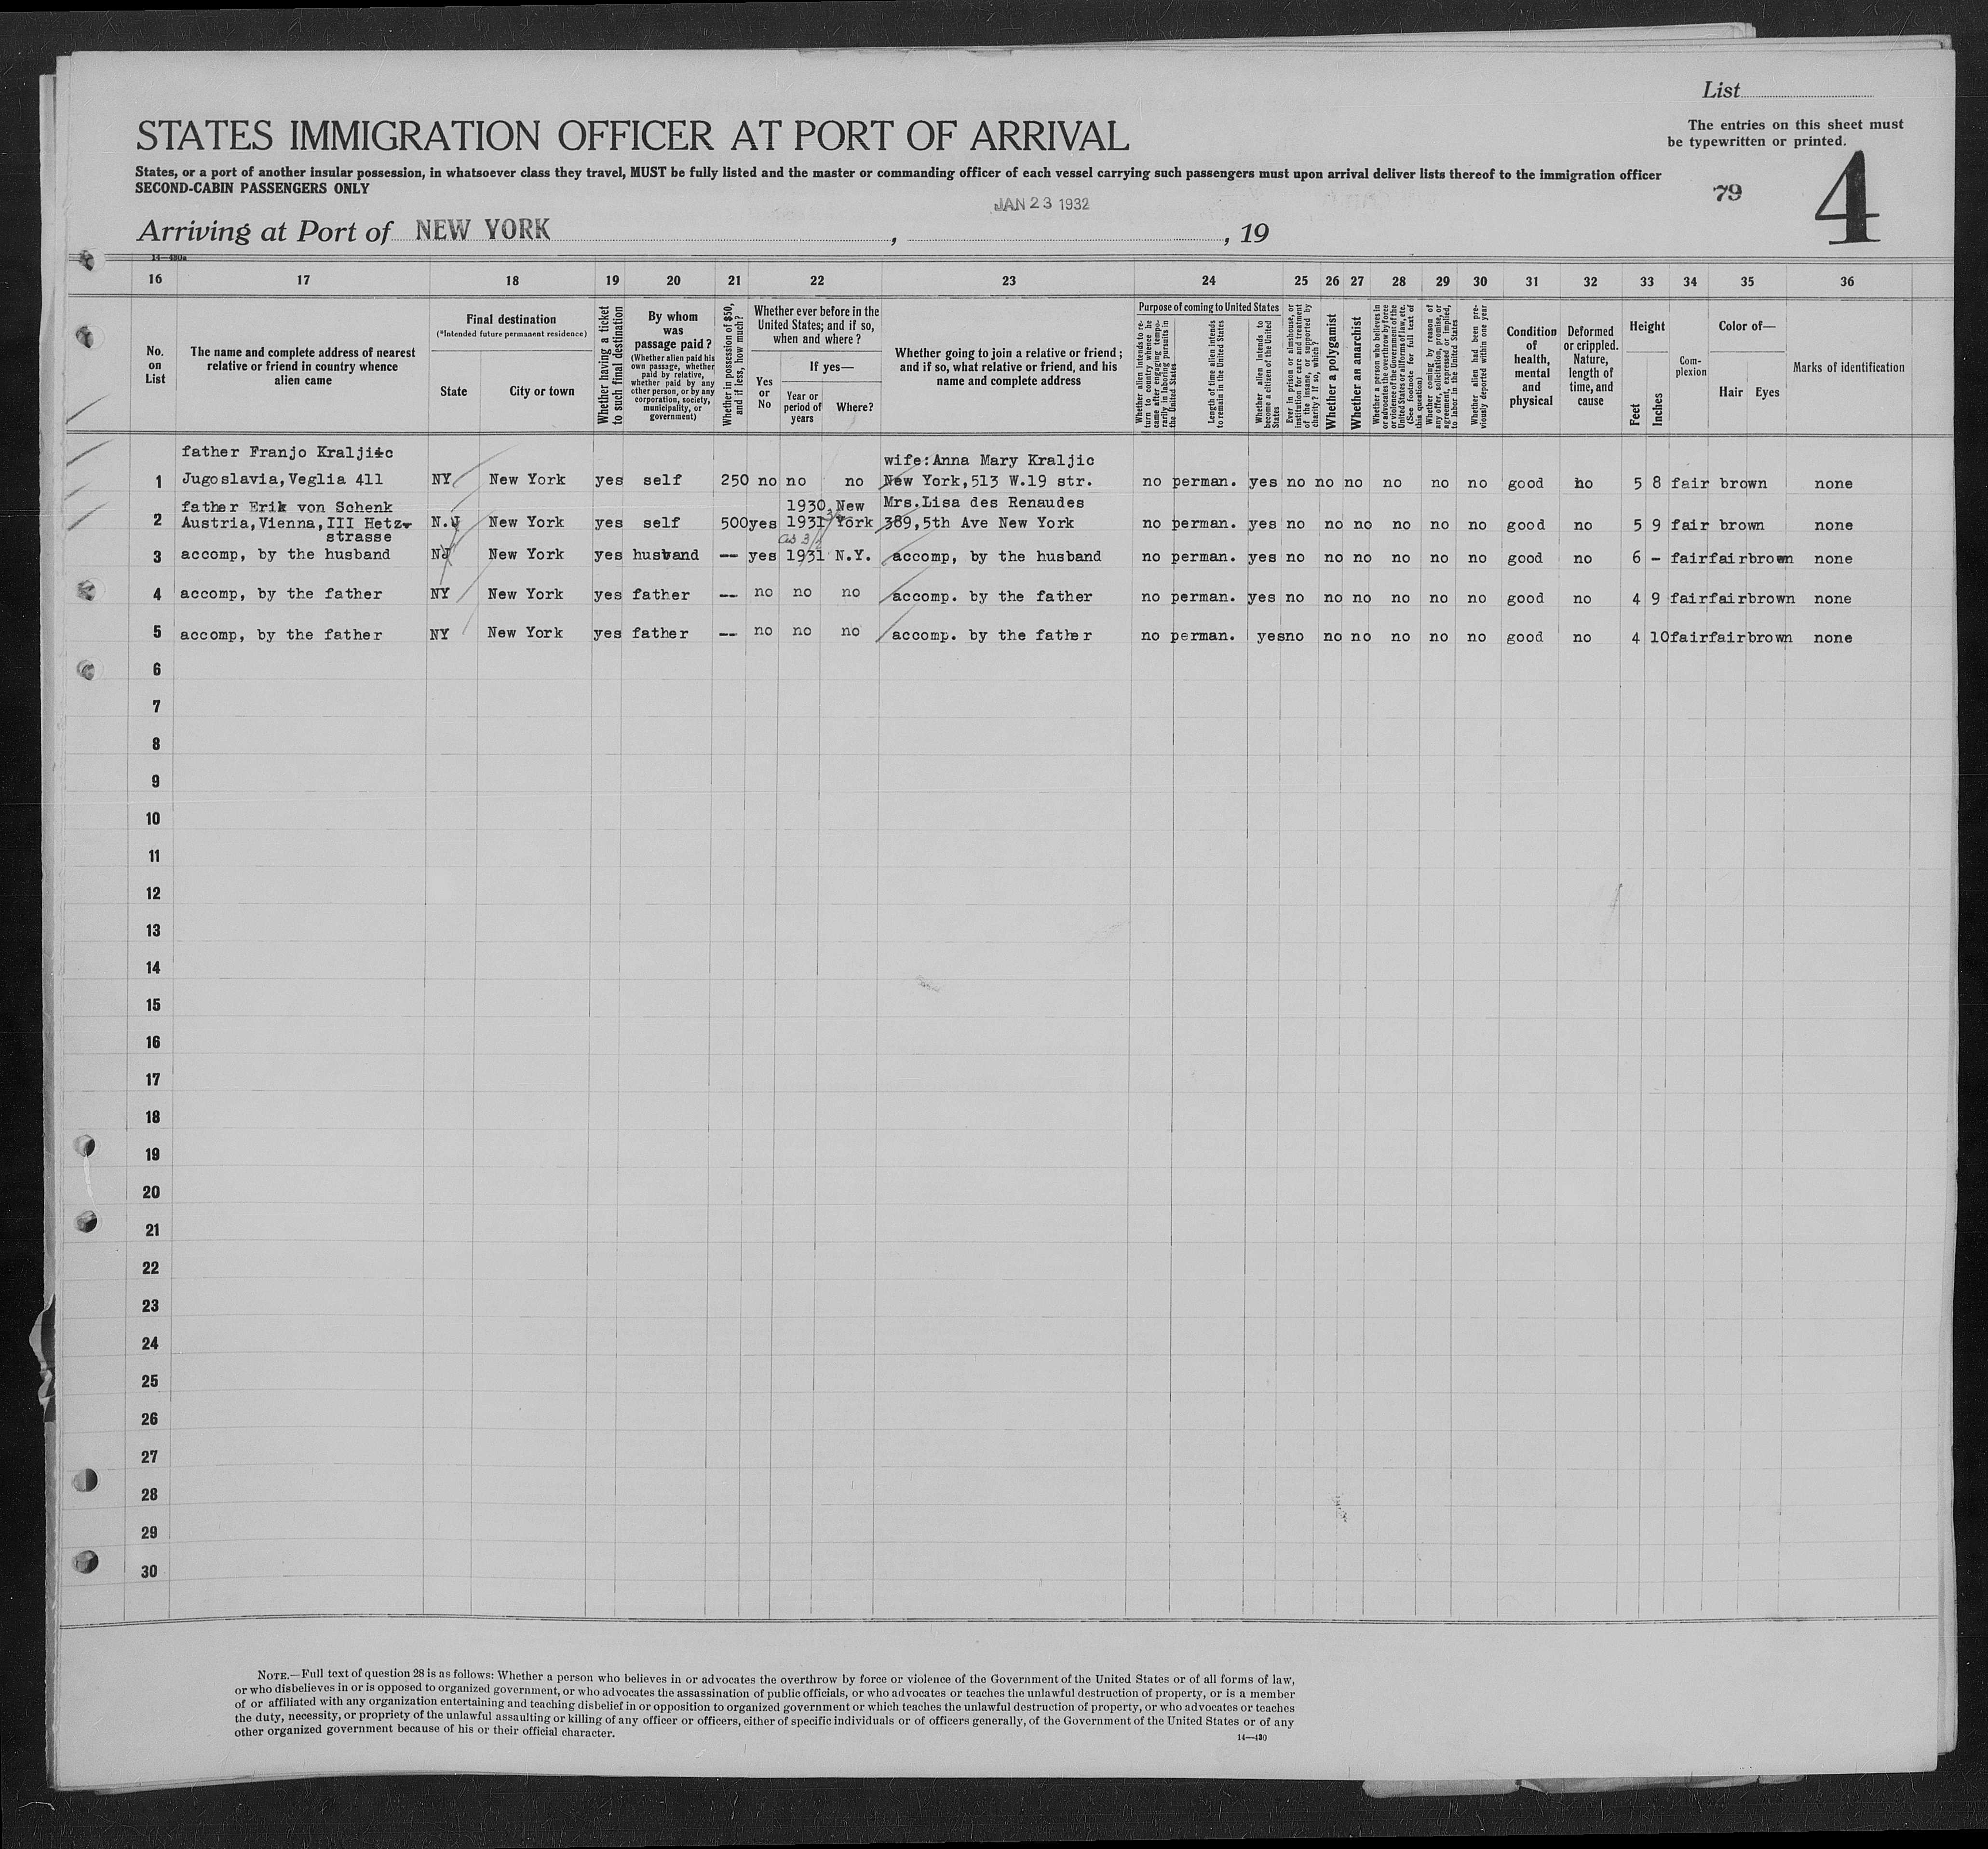 List
STATES IMMIGRATION OFFICER AT PORT OF ARRIVAL
The entries on this sheet must
be typewritten or printed.
States, or a port of another insular possession, in whatsoever class they travel, MUST be fully listed and the master or commanding officer of each vessel carrying such passengers must upon arrival deliver lists thereof to the immigration officer
SECOND-CABIN PASSENGERS ONLY
79
4
JAN 23 1932
Arriving at Port of NEW YORK , , 19
14—430a
16 17 18 19 20 21 22 23 24 25 26 27 28 29 30 31 32 33 34 35 36
No. on List
The name and complete address of nearest relative or friend in country whence alien came
Final destination
(*Intended future permanent residence)
State
City or town
Whether having a ticket to such final destination
By whom was passage paid?
(Whether alien paid his own passage, whether paid by relative, whether paid by any other person, or by any corporation, society, municipality, or government)
Whether in possession of $50, and if less, how much?
Whether ever before in the United States; and if so, when and where?
Yes or No
If yes—
Year or period of years
Where?
Whether going to join a relative or friend; and if so, what relative or friend, and his name and complete address
Purpose of coming to United States
Whether alien intends to return to country whence he came after engaging temporarily in laboring pursuits in the United States
Length of time alien intends to remain in the United States
Whether alien intends to become a citizen of the United States
Ever in prison or almshouse, or institution for care and treatment of the insane, or supported by charity? If so, which?
Whether a polygamist
Whether an anarchist
Whether a person who believes in or advocates the overthrow by force or violence of the Government of the United States or all forms of law, etc. (See footnote for full text of this question)
Whether coming by reason of any offer, solicitation, promise, or agreement, expressed or implied, to labor in the United States
Whether alien had been previously deported within one year
Condition of health, mental and physical
Deformed or crippled. Nature, length of time, and cause
Height
Feet
Inches
Complexion
Color of—
Hair Eyes
Marks of identification
father Franjo Kraljic wife:Anna Mary Kraljic
1 Jugoslavia,Veglia 411 NY New York yes self 250 no no no New York,513 W.19 str. no perman. yes no no no no no no good no 5 8 fair brown none
father Erik von Schenk 1930, New Mrs.Lisa des Renaudes
2 Austria,Vienna,III Hetz- N.J New York yes self 500 yes 1931 York 389,5th Ave New York no perman. yes no no no no no no good no 5 9 fair brown none
strasse
3 accomp, by the husband NJ New York yes husband -- yes 1931 N.Y. accomp, by the husband no perman. yes no no no no no no good no 6 - fair fair brown none
4 accomp, by the father NY New York yes father -- no no no accomp. by the father no perman. yes no no no no no no good no 4 9 fair fair brown none
5 accomp, by the father NY New York yes father -- no no no accomp. by the father no perman. yes no no no no no no good no 4 10 fair fair brown none
6
7
8
9
10
11
12
13
14
15
16
17
18
19
20
21
22
23
24
25
26
27
28
29
30
NOTE.—Full text of question 28 is as follows: Whether a person who believes in or advocates the overthrow by force or violence of the Government of the United States or of all forms of law,
or who disbelieves in or is opposed to organized government, or who advocates the assassination of public officials, or who advocates or teaches the unlawful destruction of property, or is a member
of or affiliated with any organization entertaining and teaching disbelief in or opposition to organized government or which teaches the unlawful destruction of property, or who advocates or teaches
the duty, necessity, or propriety of the unlawful assaulting or killing of any officer or officers, either of specific individuals or of officers generally, of the Government of the United States or of any
other organized government because of his or their official character.
14—430